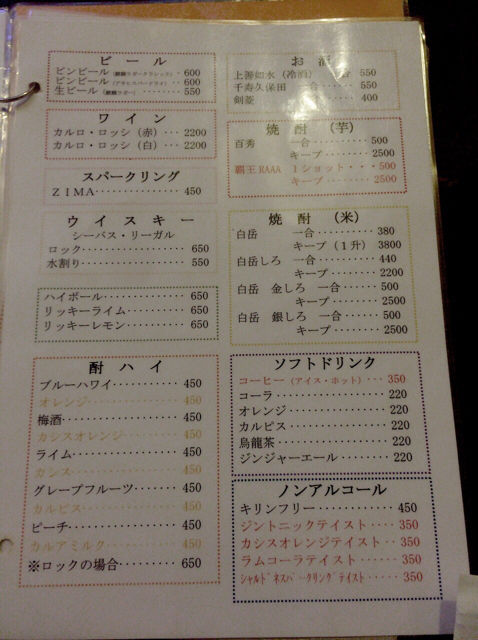 ビール
ビンビール（麒麟ラガークラシック）・・600
ビンビール（アサヒスーパードライ）・・600
生ビール（麒麟ラガー）・・・・・・・550
ワイン
カルロ・ロッシ（赤）・・・2200
カルロ・ロッシ（白）・・・2200
スパークリング
ＺＩＭＡ・・・・・・・・・・・・・450
ウイスキー
シーバス・リーガル
ロック・・・・・・・・・・・・・・・・650
水割り・・・・・・・・・・・・・・・・550
ハイボール・・・・・・・・・・・・650
リッキーライム・・・・・・・・・650
リッキーレモン・・・・・・・・・650
酎ハイ
ブルーハワイ・・・・・・・・・・450
オレンジ・・・・・・・・・・・・・450
梅酒・・・・・・・・・・・・・・・・450
カシスオレンジ・・・・・・・・・450
ライム・・・・・・・・・・・・・・・450
カシス・・・・・・・・・・・・・・・450
グレープフルーツ・・・・・・・450
カルピス・・・・・・・・・・・・・450
ピーチ・・・・・・・・・・・・・・・450
カルアミルク・・・・・・・・・・450
※ロックの場合・・・・・・・・・650
お酒
上善如水（冷酒） 合 550
千寿久保田　一合・・・・・550
剣菱 400
焼酎（芋）
百秀　一合・・・・・・・・・・500
キープ・・・・・・・・・2500
覇王RAAA　１ショット・・・500
キープ・・・・・・・・・2500
焼酎（米）
白岳　一合・・・・・・・・・・380
キープ（１升）3800
白岳しろ　一合・・・・・・・・440
キープ・・・・・・・・2200
白岳　金しろ　一合・・・・・500
キープ・・・・・・・・2500
白岳　銀しろ　一合・・・・・500
キープ・・・・・・・・2500
ソフトドリンク
コーヒー（アイス・ホット）・・・350
コーラ・・・・・・・・・・・・・・・220
オレンジ・・・・・・・・・・・・・220
カルピス・・・・・・・・・・・・・220
烏龍茶・・・・・・・・・・・・・・・220
ジンジャーエール・・・・・・・220
ノンアルコール
キリンフリー・・・・・・・・・・450
ジントニックテイスト・・・・350
カシスオレンジテイスト・・350
ラムコーラテイスト・・・・・350
ｼｬﾙﾄﾞﾈｽﾊﾟｰｸﾘﾝｸﾞﾃｲｽﾄ・・・・・350